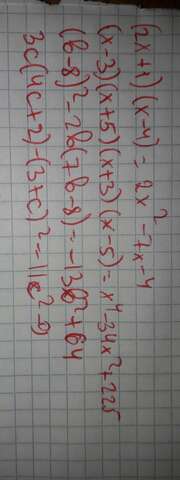 (2x+1)(x-4) = 2x²-7x-4
(x-3)(x+5)(x+3)(x-5) = x⁴-34x²+225
(b-8)²-2b(7b-8) = -13b²+64
3c(4c+2)-(3+c)² = 11c²-9